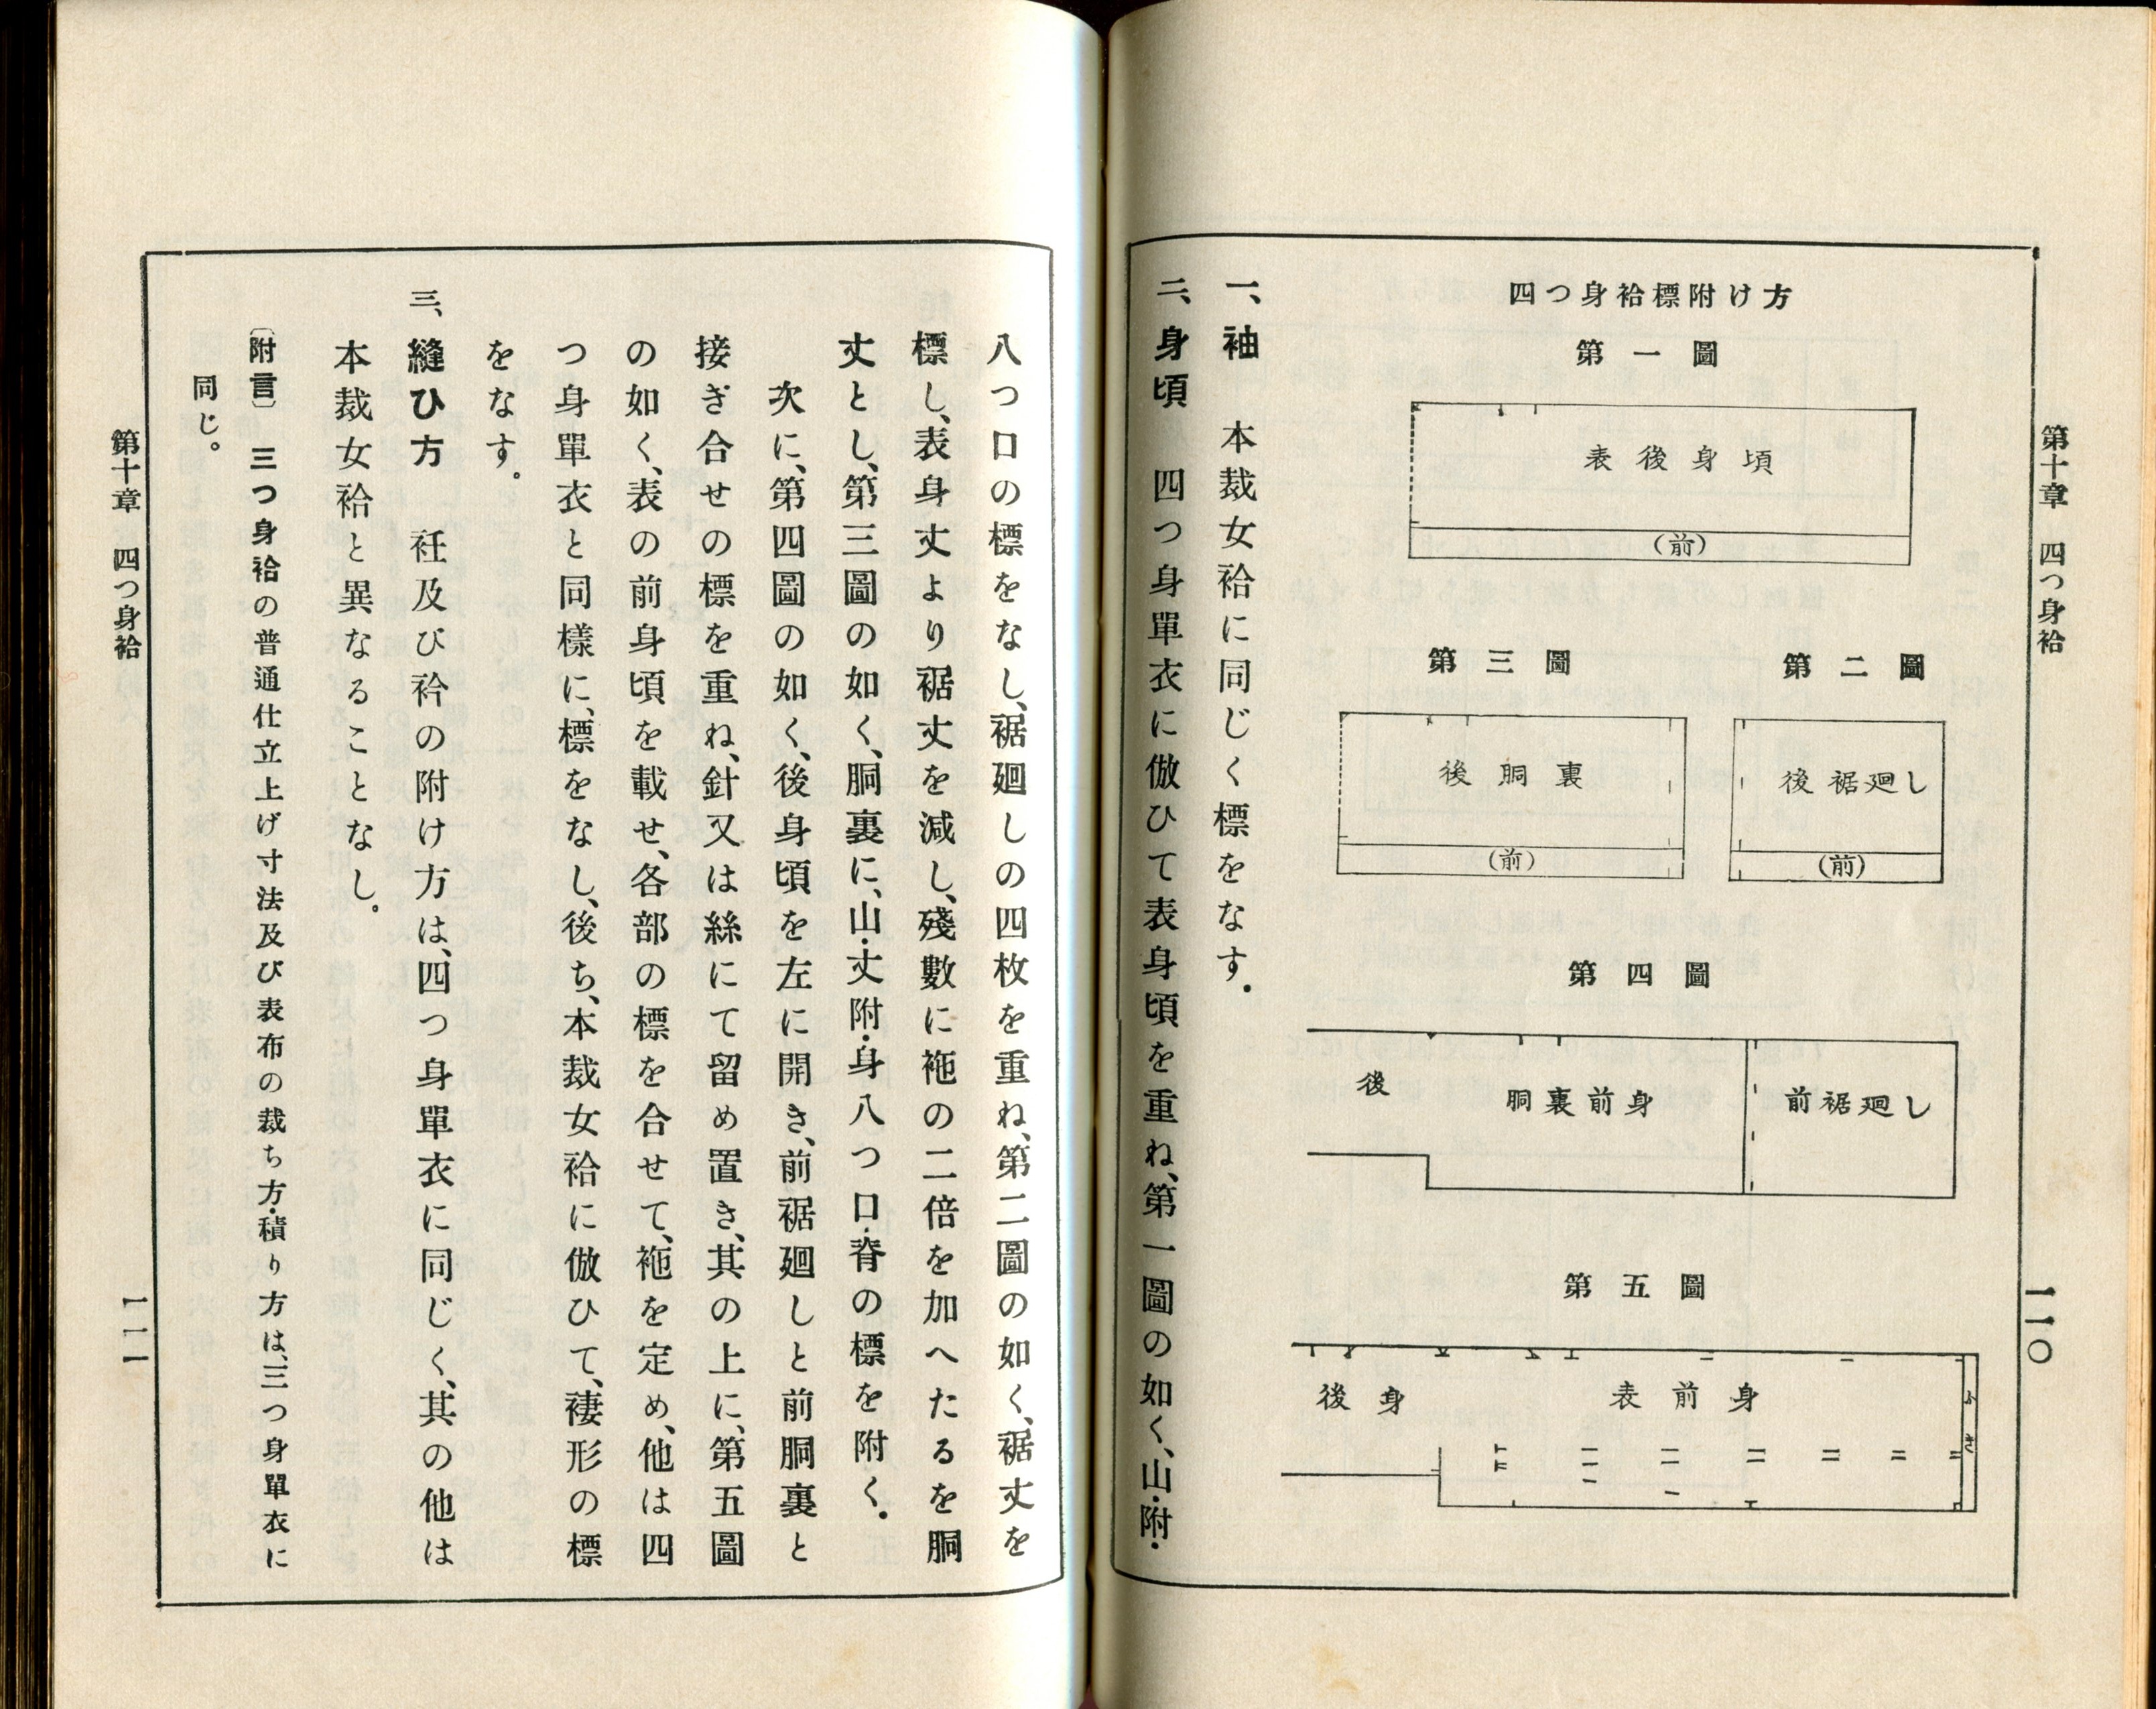 第十章　四つ身袷
一一〇
四つ身袷標附け方
第一圖
表後身頃
(前)
第二圖
後裾廻し
(前)
第三圖
後胴裏
(前)
第四圖
後
胴裏前身
前裾廻し
第五圖
後身
表前身
ふき
一、袖　本裁女袷に同じく標をなす。
二、身頃　四つ身單衣に倣ひて表身頃を重ね、第一圖の如く、山・附・
八つ口の標をなし、裾廻しの四枚を重ね、第二圖の如く、裾丈を
標し、表身丈より裾丈を減し、殘數に袘の二倍を加へたるを胴
丈とし、第三圖の如く、胴裏に、山・丈附・身八つ口・脊の標を附く。
次に、第四圖の如く、後身頃を左に開き、前裾廻しと前胴裏と
接ぎ合せの標を重ね、針又は絲にて留め置き、其の上に、第五圖
の如く、表の前身頃を載せ、各部の標を合せて、袘を定め、他は四
つ身單衣と同樣に、標をなし、後ち、本裁女袷に倣ひて、褄形の標
をなす。
三、縫ひ方　衽及び衿の附け方は、四つ身單衣に同じく、其の他は
本裁女袷と異なることなし。
〔附言〕　三つ身袷の普通仕立上げ寸法及び表布の裁ち方・積り方は、三つ身單衣に
同じ。
第十章　四つ身袷
一一一